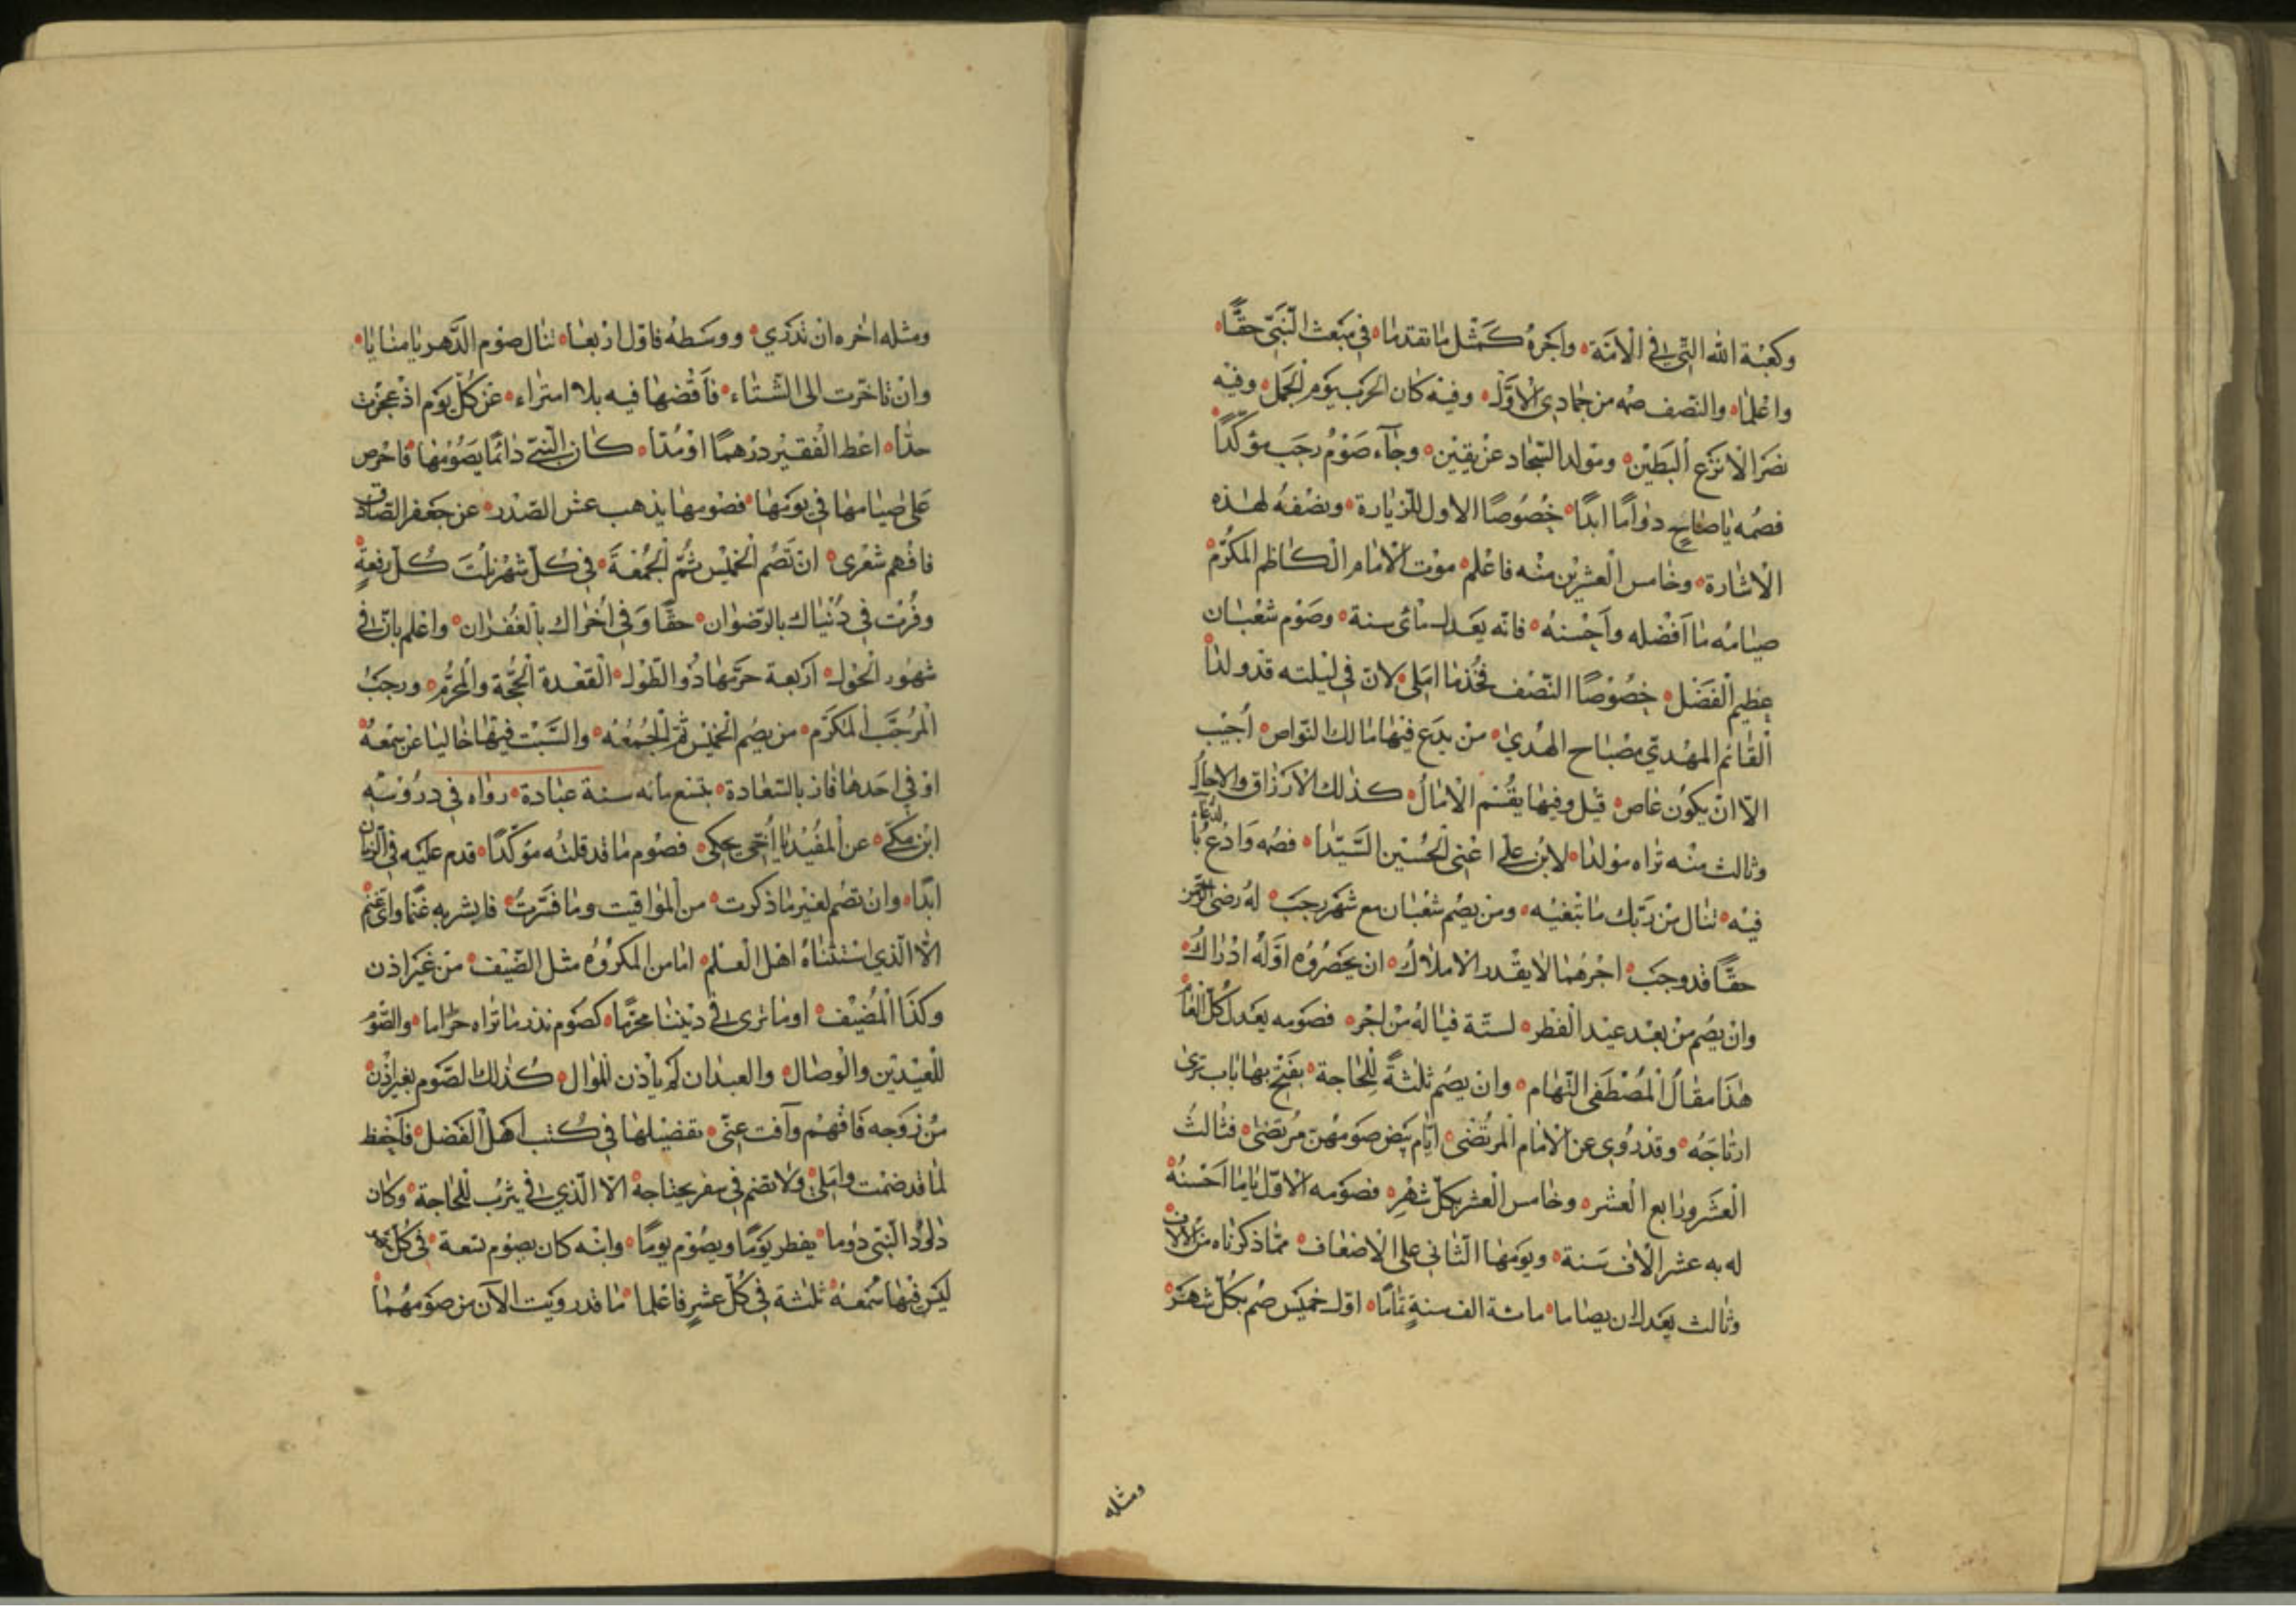 وكعبة الله التي في الأمنة واجره كمثل ما تقدما في مبعث النبي حقا
واعلما والنصف صمه من جمادى الأول وفيه كان الحرب يوم الجمل وفيه
نصر الانزع البطين ومولد السجاد عن يقين وجاء صوم رجب مؤكدا
فصمه يا صاح دواما ابدا خصوصا الاول للزيارة ونصفه لهذه
الاشارة وخامس العشرين منه فاعلم موت الامام الكاظم المكرم
صيامه ما افضله واحسنه فانه يعدل مائى سنة وصوم شعبان
عظيم الفضل خصوصا النصف فخذ ما املى لان في ليلته قد ولدا
القائم المهدي مصباح الهدي من يدع فيها مالك النواص اجيب
الا ان يكون عاص قيل وفيها يقسم الامال كذلك الارزاق والاجال
وثالث منه تراه مولدا لابن علي اعني الحسين السيدا فصمه وادع بالدعاء
فيه تنال من ربك ما تبغيه ومن يصم شعبان مع شهر رجب له رضى الرحمن
حقا قد وجب اجرهما لا يقدر الاملاك ان يحصروه او له ادراك
وان يصم من بعد عيد الفطر لستة فيا له من اجر فصومه يعدل كل العام
هذا مقال المصطفى التهام وان يصم ثلثة للحاجة بفتح بها باب ترى
ارتاجه وقد روي عن الامام المرتضى ايام بيض صومهن مرتضى فثالث
العشر ورابع العشر وخامس العشر بكل شهر فصومه الاول ياما احسنه
له به عشر الاف سنة ويومها الثاني على الاضعاف مما ذكرناه من الالاف
وثالث يعدل ان يصاما مائة الف سنة تماما اول خميس صم بكل شهر
ومثله
ومثله اخره ان تدري ووسطه فاول اربعا تنال صوم الدهر يا من ايا
وان تاخرت الى الشتاء فاقضها فيه بلا امتراء عن كل يوم اذ عجزت
حدا اعط الفقير درهما او مدا كان النبي دائما يصومها فاحرص
على صيامها في يومها فصومها يذهب عش الصدر عن جعفر الصادق
فافهم شعرى ان تصم الخميس ثم الجمعة في كل شهر نلت كل رفعة
وفزت في دنياك بالرضوان حقا وفي اخراك بالغفران واعلم بان في
شهور الحول اربعة حرمها ذو الطول القعدة الحجة والمحرم ورجب
المرجب المكرم من يصم الخميس ثم الجمعه والسبت فيها خاليا عن سمعة
او في احدها فاز بالسعادة بتسع مائه سنة عبادة رواه في دروسه
ابن مكي عن المفيد يا أخي يحكى فصوم ما قد قلته مؤكدا قدم عليه في الزمان
ابدا وان تصم لغير ما ذكرت من المواقيت وما فسرت فابشر به غنما واي غنم
الا الذي استثناه اهل العلم اما من المكروه مثل الضيف من غير اذن
وكذا المضيف او ما ترى في ديننا محرما كصوم نذر ما تراه حراما والصوم
للعيدين والوصال والعبدان لم ياذن الموال كذلك الصوم بغير اذن
من زوجه فافهم وآفت عني تفضيلها في كتب اهل الفضل فاحفظ
لما قد ضمت واملي ولا تضم في سفر يحتاجة الا الذي في يثرب للحاجة وكان
داود النبي دوما يفطر يوما ويصوم يوما وانه كان يصوم تسعة في كل شهر
ليس فيها سمعة ثلثة في كل عشر فاعلما ما قد رويت الآن من صومهما